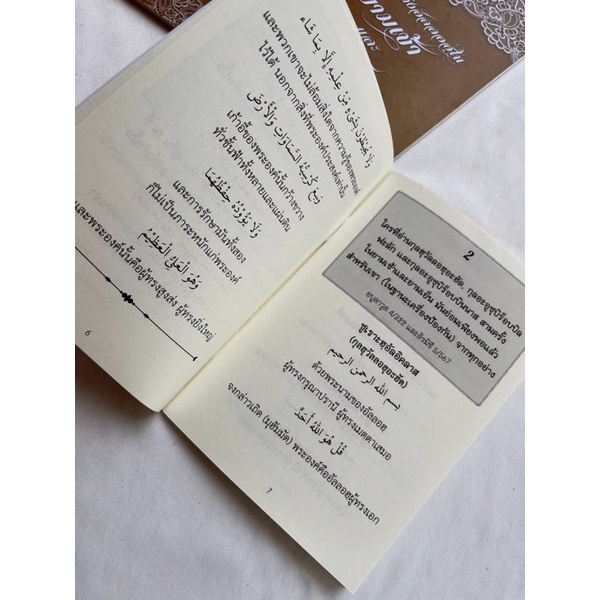 ยามเช้า
และ
وَلَا يُحِيطُونَ بِشَيْءٍ مِّنْ عِلْمِهِ إِلَّا بِمَا شَاءَ
และพวกเขาจะไม่ล้อมสิ่งใดจากความรู้ของพระองค์
ไว้ได้ นอกจากสิ่งที่พระองค์ประสงค์เท่านั้น
وَسِعَ كُرْسِيُّهُ السَّمَاوَاتِ وَالْأَرْضَ
เก้าอี้ของพระองค์นั้นกว้างขวาง
ทั่วชั้นฟ้าทั้งหลายและแผ่นดิน
وَلَا يَؤُودُهُ حِفْظُهُمَا
และการรักษามันทั้งสอง
ก็ไม่เป็นภาระหนักแก่พระองค์
وَهُوَ الْعَلِيُّ الْعَظِيمُ
และพระองค์นั้นคือผู้ทรงสูงส่ง ผู้ทรงยิ่งใหญ่
6
2
ใครที่อ่านกุลฮุวัลลอฮุอะฮัด, กุลอะอูซุบิร็อบบิล
ฟะลัก และกุลอะอูซุบิร็อบบินนาส สามครั้ง
ในยามเช้าและยามเย็น มันย่อมเพียงพอแล้ว
สำหรับเขา (ในฐานะเครื่องป้องกัน) จากทุกอย่าง
อบูดาวูด 4/322 และติรมิซี 5/567
ซูเราะฮฺอัลอิคลาส
(กุลฮุวัลลอฮุอะฮัด)
بِسْمِ اللَّهِ الرَّحْمَنِ الرَّحِيمِ
ด้วยพระนามของอัลลอฮฺ
ผู้ทรงกรุณาปรานี ผู้ทรงเมตตาเสมอ
قُلْ هُوَ اللَّهُ أَحَدٌ
จงกล่าวเถิด (มุฮัมมัด) พระองค์คืออัลลอฮฺผู้ทรงเอก
7